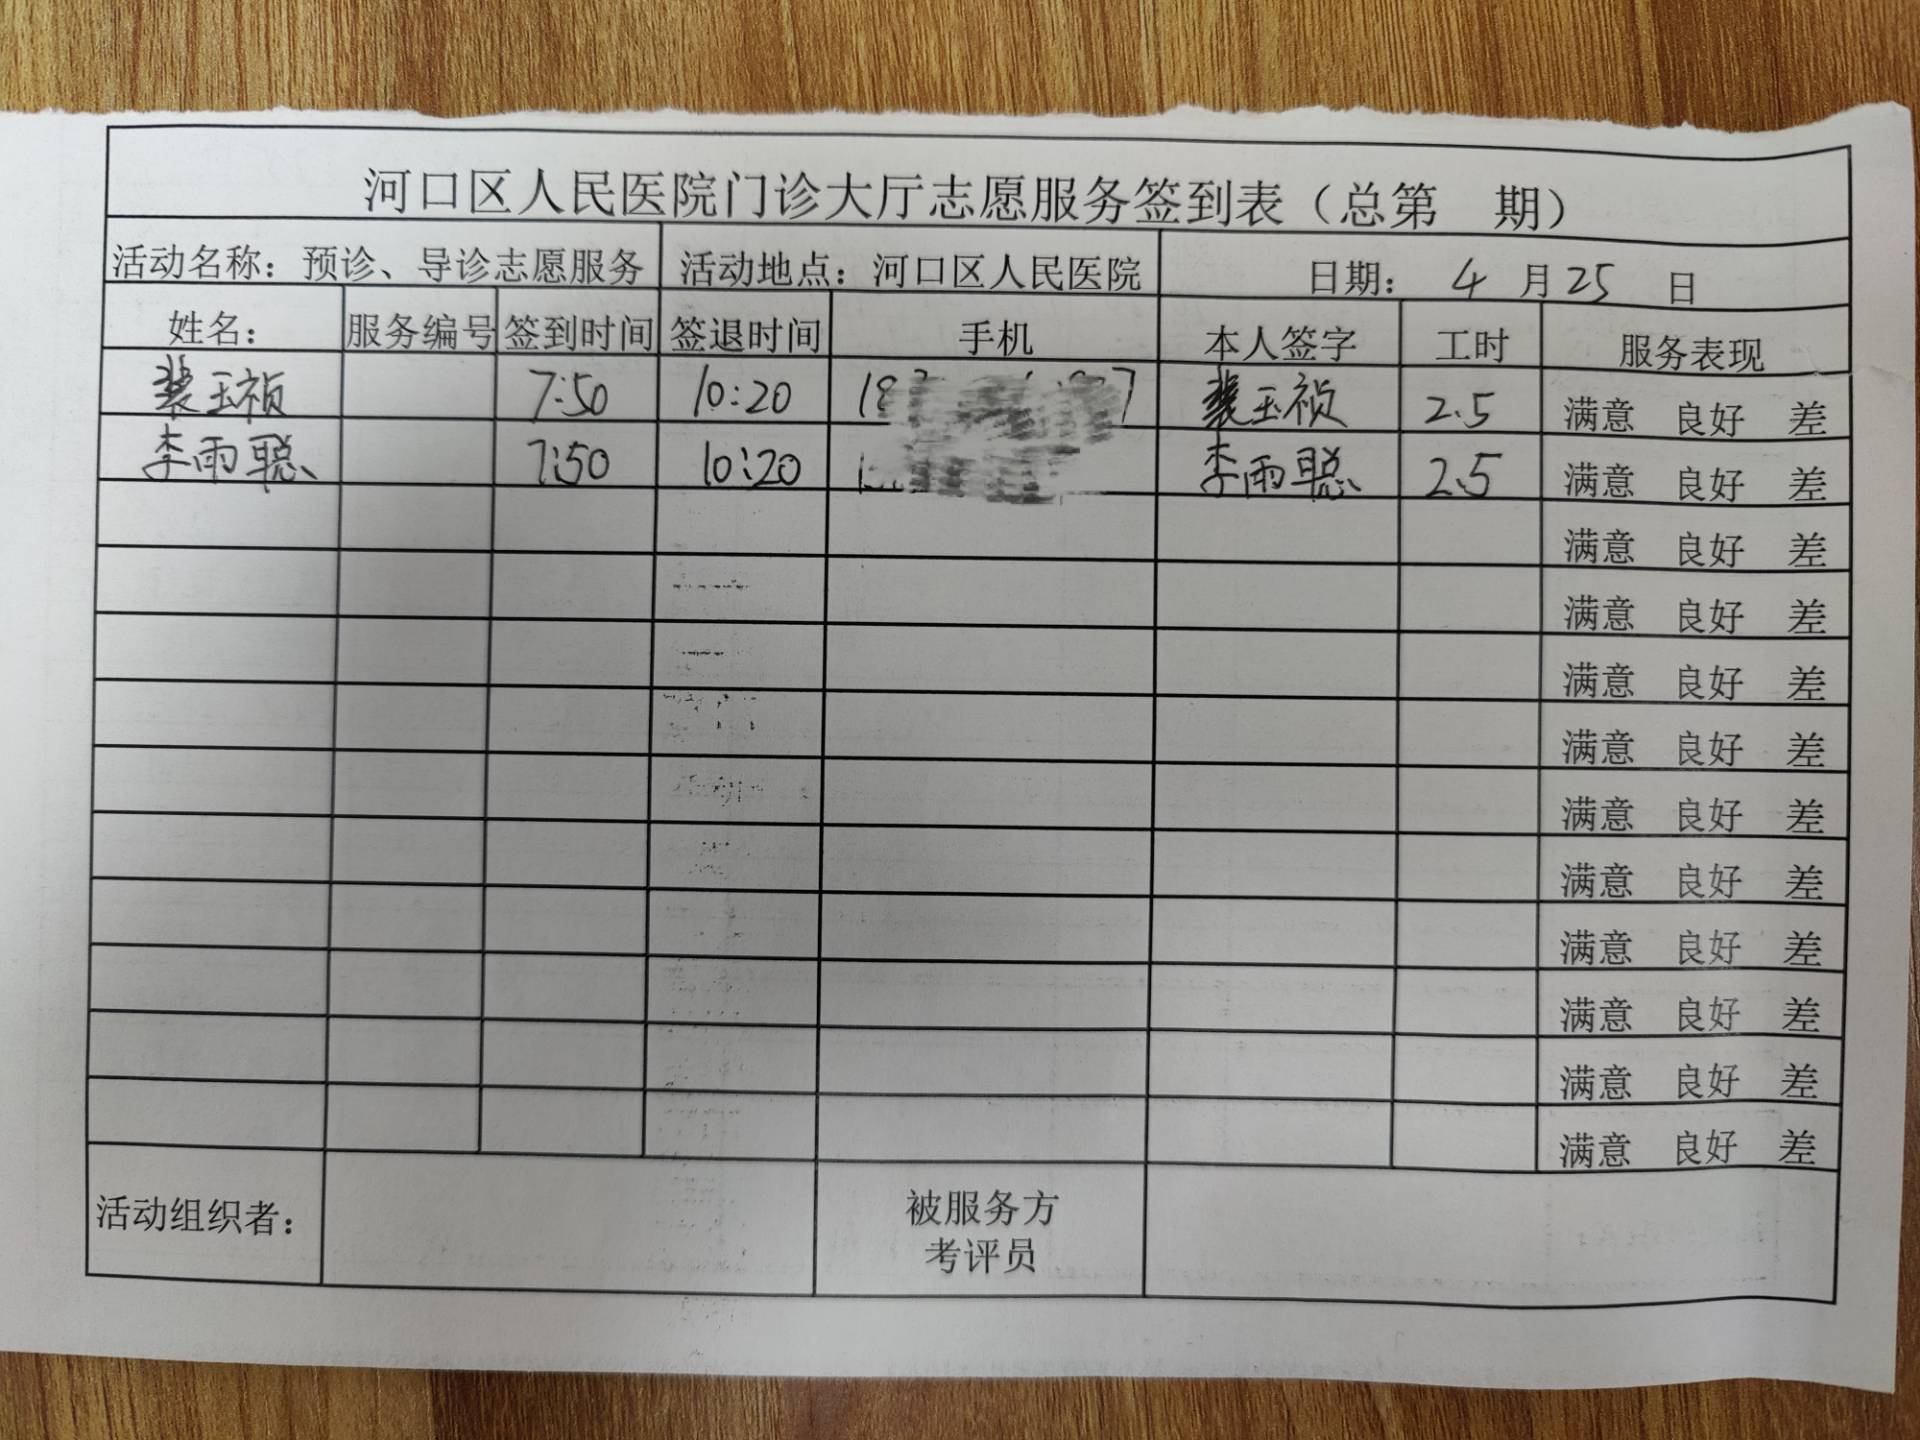 河口区人民医院门诊大厅志愿服务签到表（总第　期）
活动名称：预诊、导诊志愿服务 活动地点：河口区人民医院 日期： 4 月 25 日
姓名： 服务编号 签到时间 签退时间 手机 本人签字 工时 服务表现
裴玉祯 7:50 10:20 裴玉祯 2.5 满意 良好 差
李雨聪 7:50 10:20 李雨聪 2.5 满意 良好 差
满意 良好 差
满意 良好 差
满意 良好 差
满意 良好 差
满意 良好 差
满意 良好 差
满意 良好 差
满意 良好 差
满意 良好 差
满意 良好 差
活动组织者： 被服务方
考评员